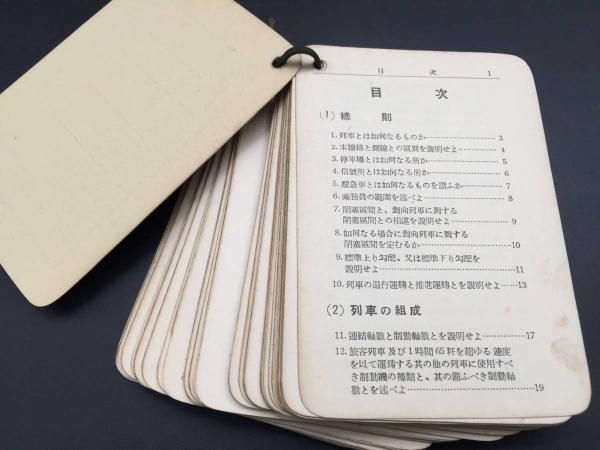 目次 1
目次
(1) 總則
1. 列車とは如何なるものか………………… 3
2. 本線路と側線との區別を説明せよ……… 4
3. 停車場とは如何なる所か………………… 5
4. 信號所とは如何なる所か………………… 6
5. 緩急車とは如何なるものを謂ふか……… 7
6. 乘務員の範圍を述べよ…………………… 8
7. 閉塞區間と、對向列車に對する
閉塞區間との相違を説明せよ………… 9
8. 如何なる場合に對向列車に對する
閉塞區間を定むるか……………………10
9. 標準上り勾配、又は標準下り勾配を
説明せよ…………………………………11
10. 列車の退行運轉と推進運轉とを説明せよ……13
(2) 列車の組成
11. 連結軸數と制動軸數とを説明せよ……………17
12. 旅客列車及び1時間65粁を超ゆる速度
を以て運轉する其の他の列車に使用すべ
き制動機の種類と、其の關ふべき制動軸
數とを述べよ……………………………19